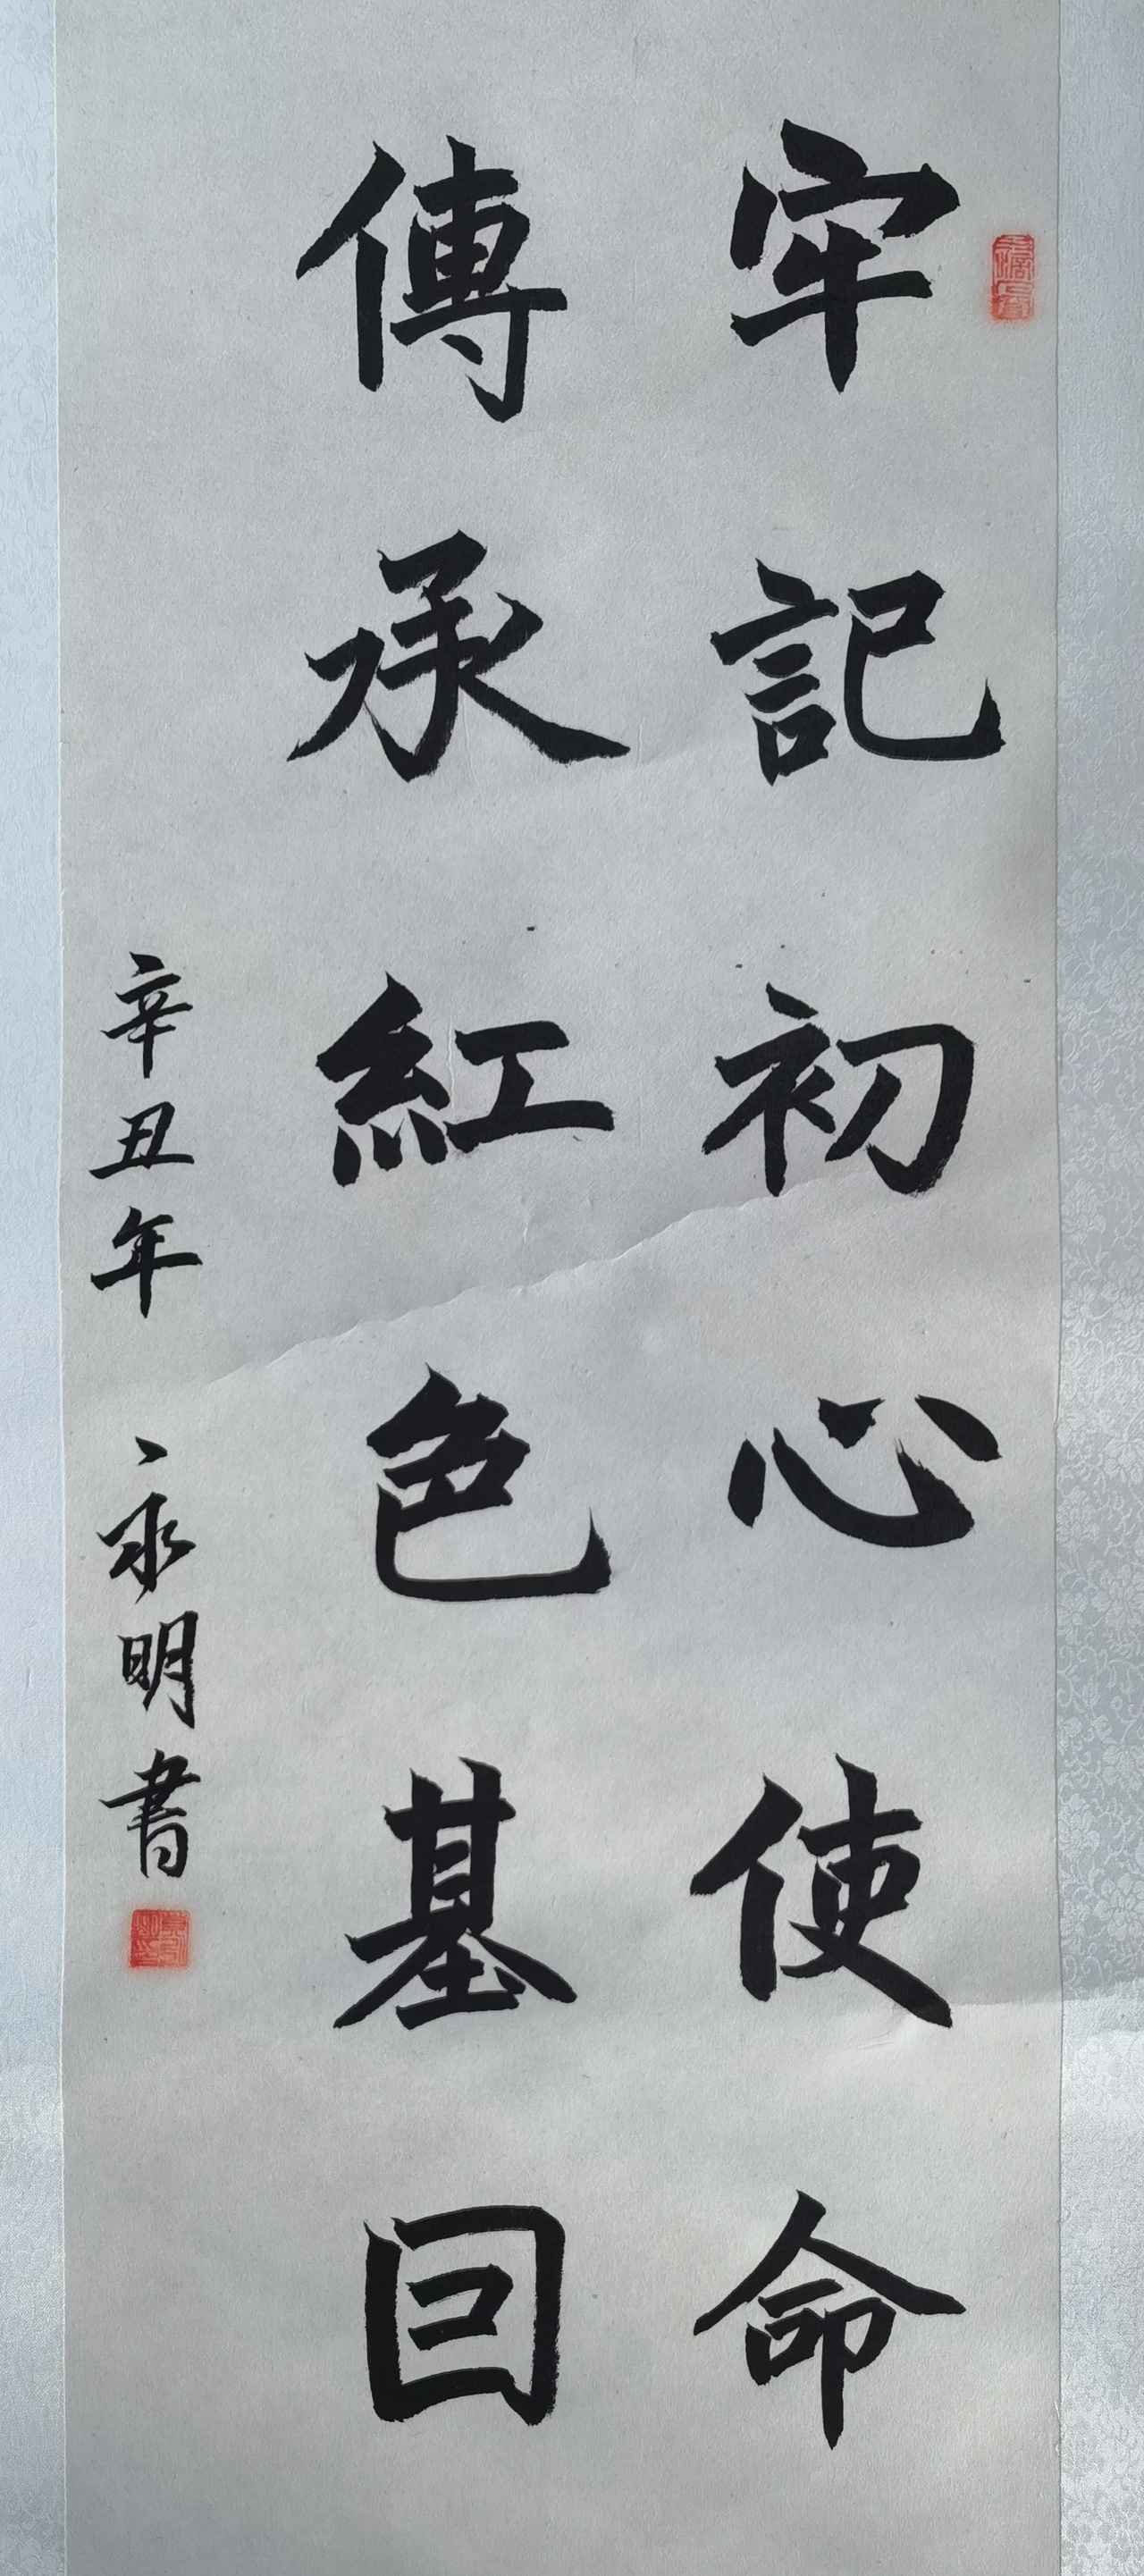 牢記初心使命
傳承紅色基囙
辛丑年 永明書